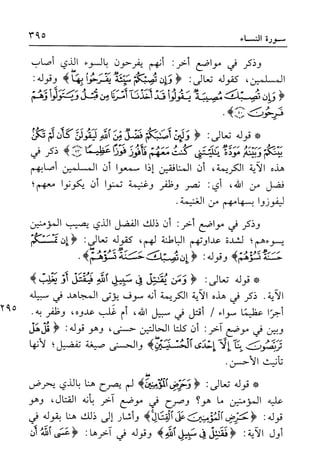 سورة النساء ٣٩٥
وذكر في مواضع أخر: أنهم يفرحون بالسوء الذي أصاب
المسلمين، كقوله تعالى: ﴿وَإِن تُصِبْكُمْ سَيِّئَةٌ يَفْرَحُوا بِهَا﴾ وقوله:
﴿وَإِن تُصِبْكَ مُصِيبَةٌ يَقُولُوا قَدْ أَخَذْنَا أَمْرَنَا مِن قَبْلُ وَيَتَوَلَّوا وَّهُمْ
فَرِحُونَ ۝﴾.
* قوله تعالى: ﴿وَلَئِنْ أَصَابَكُمْ فَضْلٌ مِّنَ اللَّهِ لَيَقُولَنَّ كَأَن لَّمْ تَكُنْ
بَيْنَكُمْ وَبَيْنَهُ مَوَدَّةٌ يَا لَيْتَنِي كُنتُ مَعَهُمْ فَأَفُوزَ فَوْزًا عَظِيمًا ۝﴾ ذكر في
هذه الآية الكريمة، أن المنافقين إذا سمعوا أن المسلمين أصابهم
فضل من الله، أي: نصر وظفر وغنيمة تمنوا أن يكونوا معهم؛
ليفوزوا بسهامهم من الغنيمة.
وذكر في مواضع أخر: أن ذلك الفضل الذي يصيب المؤمنين
يسوءهم؛ لشدة عداوتهم الباطنة لهم، كقوله تعالى: ﴿إِن تَمْسَسْكُمْ
حَسَنَةٌ تَسُؤْهُمْ﴾ وقوله: ﴿إِن تُصِبْكَ حَسَنَةٌ تَسُؤْهُمْ﴾.
* قوله تعالى: ﴿وَمَن يُقَاتِلْ فِي سَبِيلِ اللَّهِ فَيُقْتَلْ أَوْ يَغْلِبْ﴾
الآية. ذكر في هذه الآية الكريمة أنه سوف يؤتى المجاهد في سبيله
أجرًا عظيمًا سواء / أقتل في سبيل الله، أم غلب عدوه، وظفر به. ٢٩٥
وبين في موضع آخر: أن كلتا الحالتين حسنى، وهو قوله: ﴿قُلْ هَلْ
تَرَبَّصُونَ بِنَا إِلَّا إِحْدَى الْحُسْنَيَيْنِ﴾ والحسنى صيغة تفضيل؛ لأنها
تأنيث الأحسن.
* قوله تعالى: ﴿وَحَرِّضِ الْمُؤْمِنِينَ﴾ لم يصرح هنا بالذي يحرض
عليه المؤمنين ما هو؟ وصرح في موضع آخر بأنه القتال، وهو
قوله: ﴿حَرِّضِ الْمُؤْمِنِينَ عَلَى الْقِتَالِ﴾ وأشار إلى ذلك هنا بقوله في
أول الآية: ﴿فَقَاتِلْ فِي سَبِيلِ اللَّهِ﴾ وقوله في آخرها: ﴿عَسَى اللَّهُ أَن